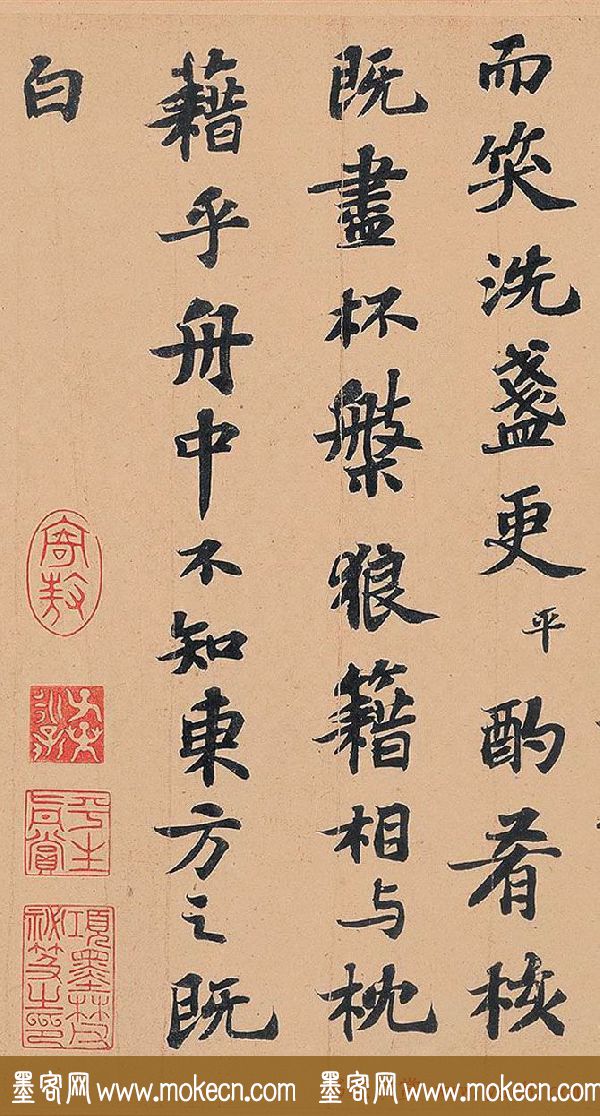 而笑洗盞更平酌肴核
既盡杯槃狼籍相与枕
藉乎舟中不知東方之既
白
寄敖
平生真賞
項墨林祕笈之印
墨客网 www.mokecn.com 墨客网 www.mokecn.com